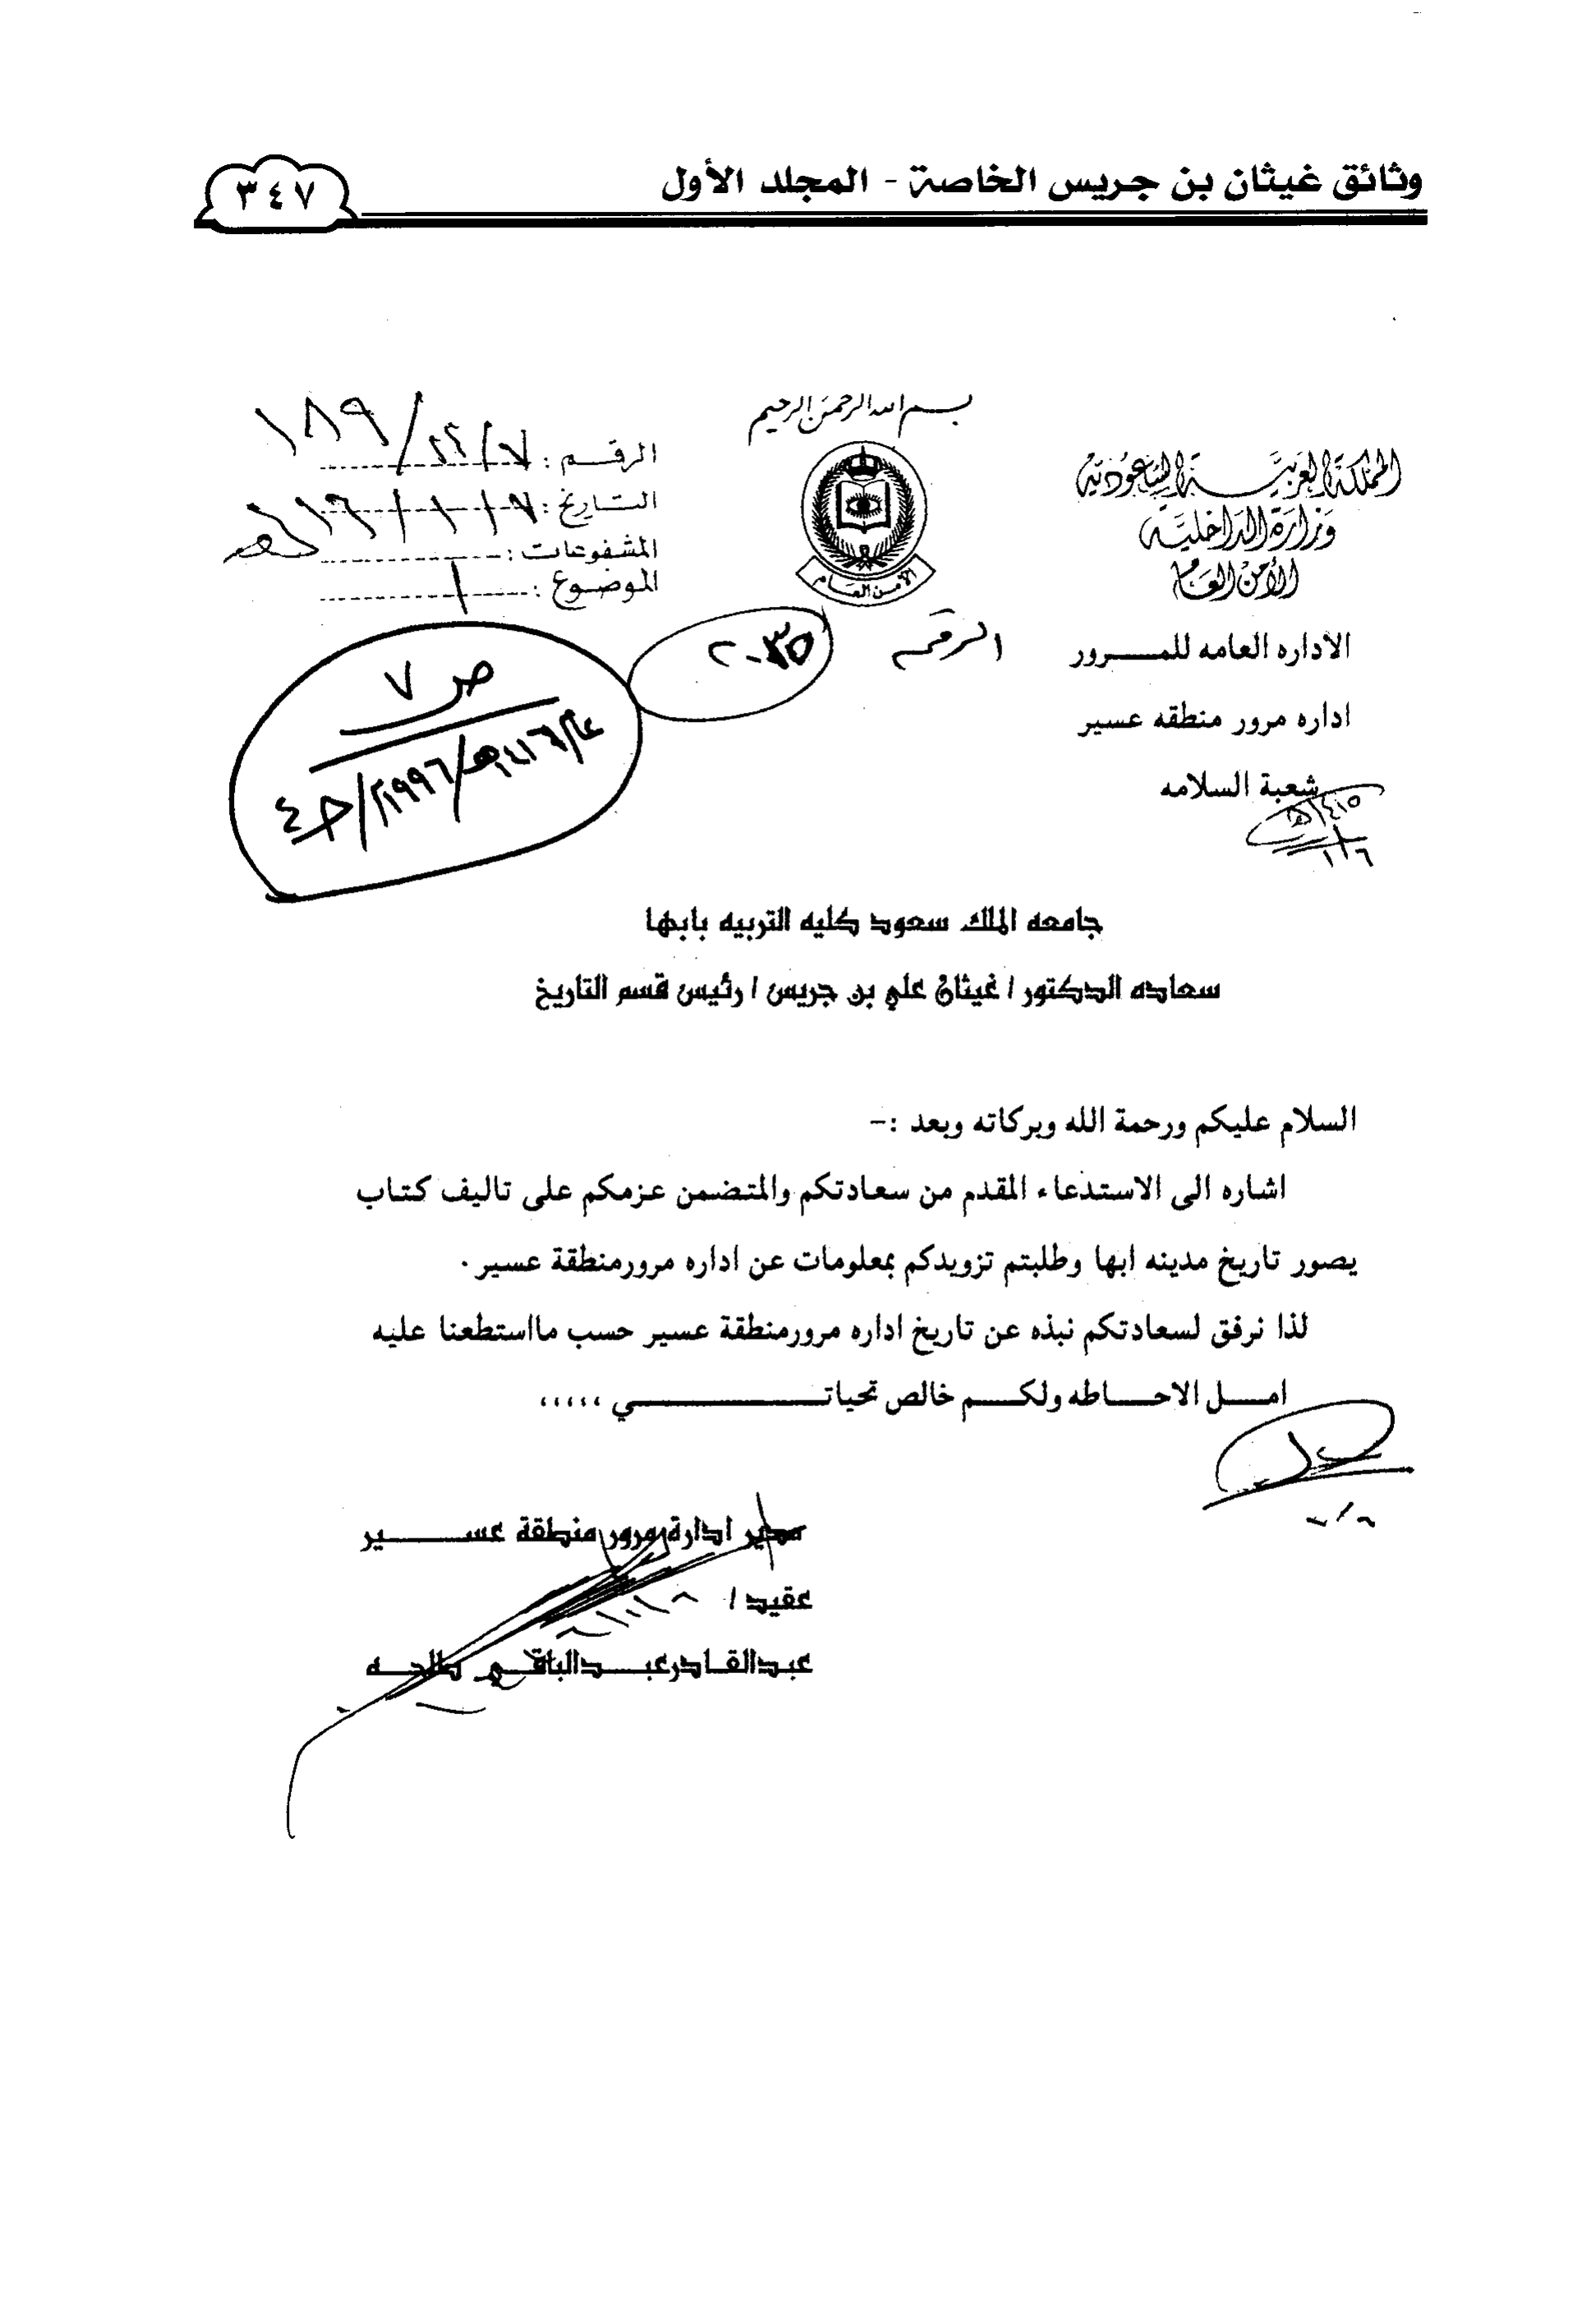 وثائق غيثان بن جريس الخاصة - المجلد الأول
٣٤٧
بسم الله الرحمن الرحيم
المملكة العربية السعودية
وزارة الداخلية
الأمن العام
الاداره العامه للمـــرور
اداره مرور منطقه عسير
شعبة السلامه
الأمن العام
الرقم :
التاريخ :
المشفوعات :
الموضوع :
الرقم ٢٠٣٥
ص ٧
عام/١٤١٦هـ/١٩٩٦م/
جامعه الملك سعود كليه التربيه بابها
سعاده الدكتور / غيثان علي بن جريس / رئيس قسم التاريخ
السلام عليكم ورحمة الله وبركاته وبعد :-
اشاره الى الاستدعاء المقدم من سعادتكم والمتضمن عزمكم على تاليف كتاب
يصور تاريخ مدينه ابها وطلبتم تزويدكم بمعلومات عن اداره مرورمنطقة عسير .
لذا نرفق لسعادتكم نبذه عن تاريخ اداره مرورمنطقة عسير حسب مااستطعنا عليه
امـــل الاحـــاطه ولكـــم خالص تحياتـــــــي ،،،،،
مدير ادارة مرور منطقة عســـــير
عقيد /
عبدالقـادرعبـــدالباقـي طالحـه